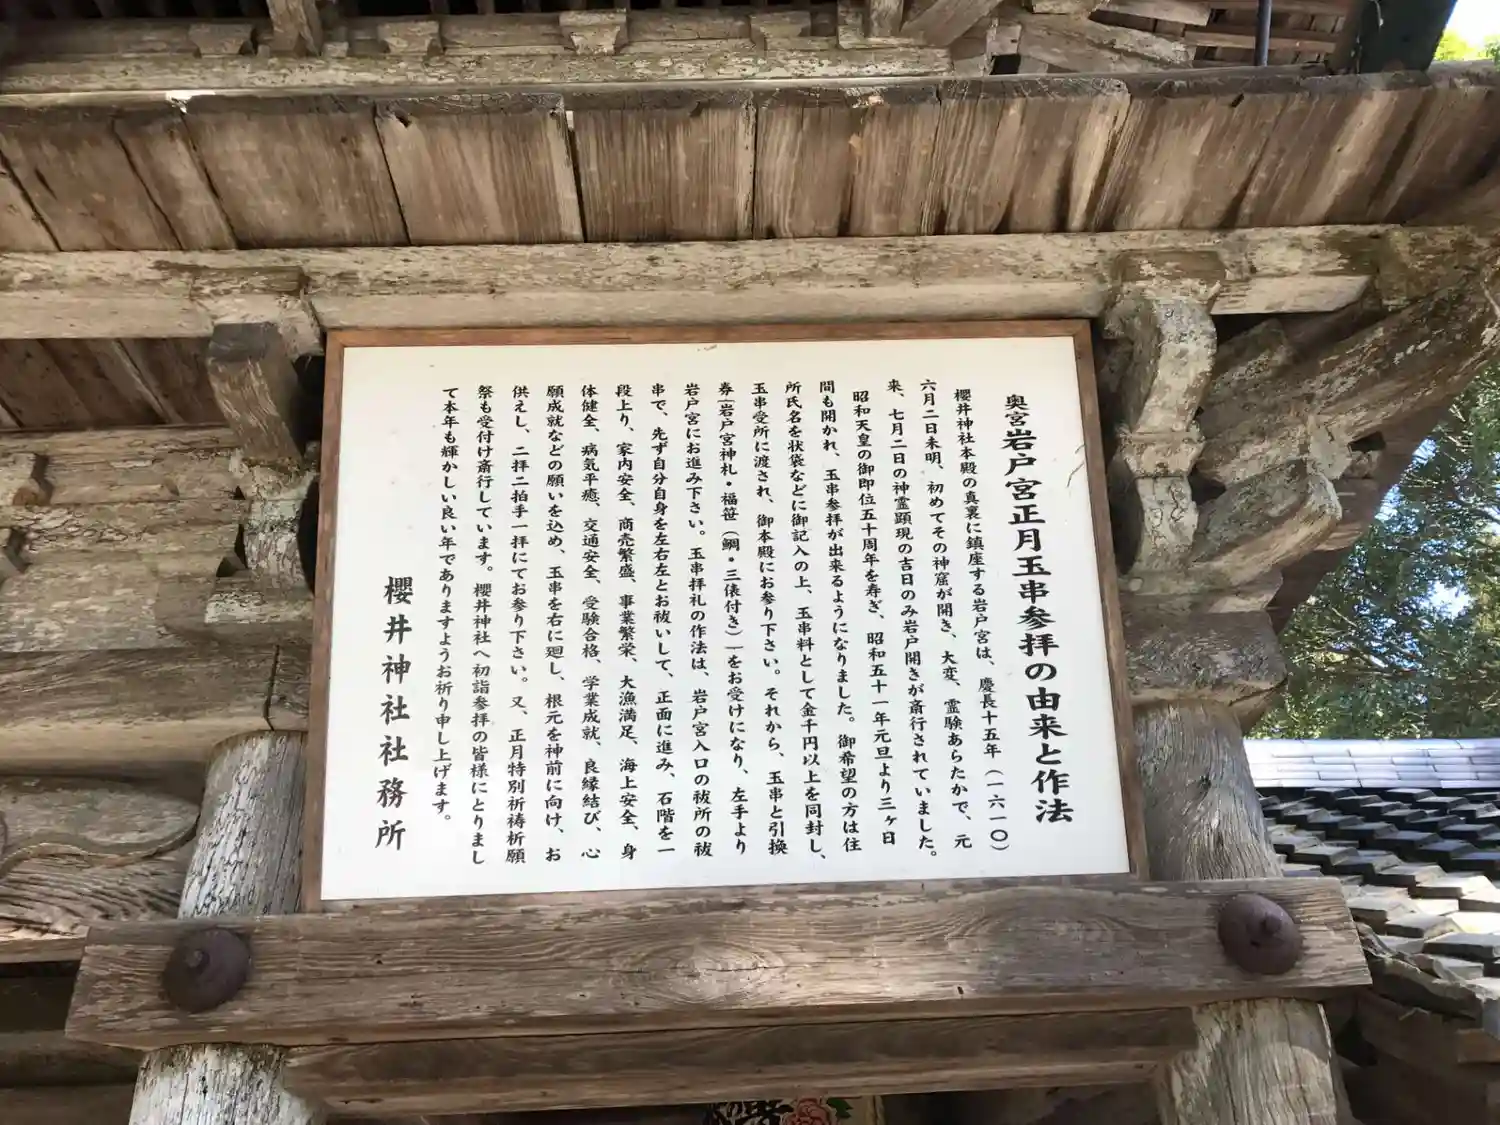 奥宮岩戸宮正月玉串参拝の由来と作法
櫻井神社本殿の真裏に鎮座する岩戸宮は、慶長十五年（一六一〇）
六月二日未明、初めてその神窟が開き、大変、霊験あらたかで、元
来、七月二日の神霊顕現の吉日のみ岩戸開きが斎行されていました。
昭和天皇の御即位五十周年を寿ぎ、昭和五十一年元旦より三ヶ日
間も開かれ、玉串参拝が出来るようになりました。御希望の方は住
所氏名を状袋などに御記入の上、玉串料として金千円以上を同封し、
玉串受所に渡され、御本殿にお参り下さい。それから、玉串と引換
券「岩戸宮神札・福笹（鯛・三俵付き）」をお受けになり、左手より
岩戸宮にお進み下さい。玉串拝礼の作法は、岩戸宮入口の祓所の祓
串で、先ず自分自身を左右左とお祓いして、正面に進み、石階を一
段上り、家内安全、商売繁盛、事業繁栄、大漁満足、海上安全、身
体健全、病気平癒、交通安全、受験合格、学業成就、良縁結び、心
願成就などの願いを込め、玉串を右に廻し、根元を神前に向け、お
供えし、二拝二拍手一拝にてお参り下さい。又、正月特別祈祷祈願
祭も受付け斎行しています。櫻井神社へ初詣参拝の皆様にとりまし
て本年も輝かしい良い年でありますようお祈り申し上げます。
櫻井神社社務所